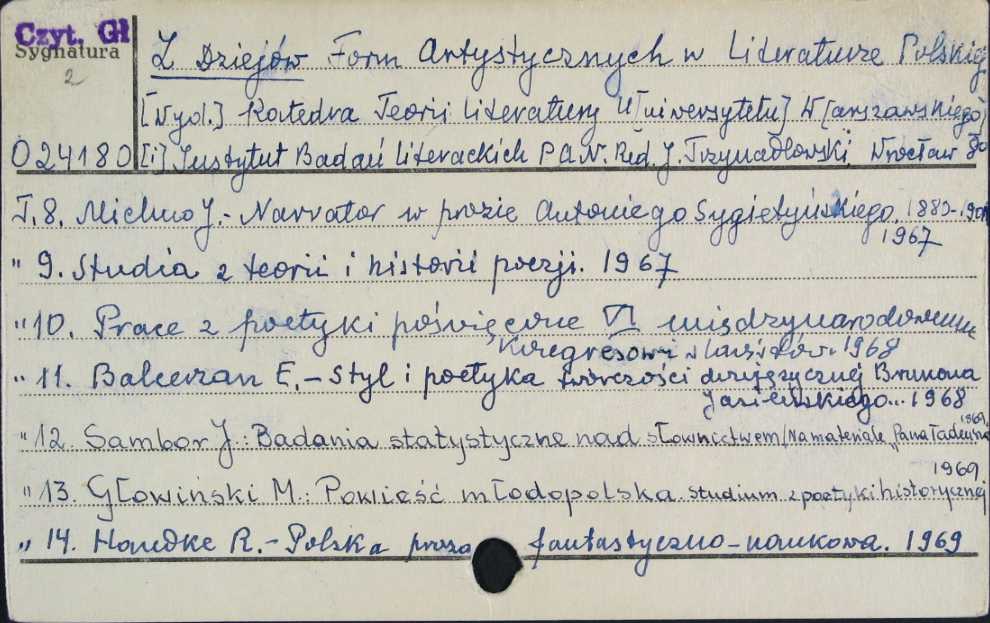 Czyt. Gł
Sygnatura
2
Z Dziejów Form Artystycznych w Literaturze Polskiej
[Wyd.] Katedra Teorii Literatury U[niwersytetu] W[arszawskiego]
024180 [i] Instytut Badań Literackich PAN. Red. J. Trzynadlowski, Wrocław
T. 8. Michno J. - Narrator w prozie Antoniego Sygietyńskiego. 1880-
1967
" 9. Studia z teorii i historii poezji. 1967
" 10. Prace z poetyki poświęcone VI międzynarodowemu
Kongresowi slawistów. 1968
" 11. Balcerzan E. - Styl i poetyka twórczości dwujęzycznej Brunona
Jasieńskiego... 1968
" 12. Sambor J.: Badania statystyczne nad słownictwem /Na materiale „Pana Tadeusza
1969
1969
" 13. Głowiński M.: Powieść młodopolska. Studium z poetyki historycznej
" 14. Handke R. - Polska proza fantastyczno-naukowa. 1969